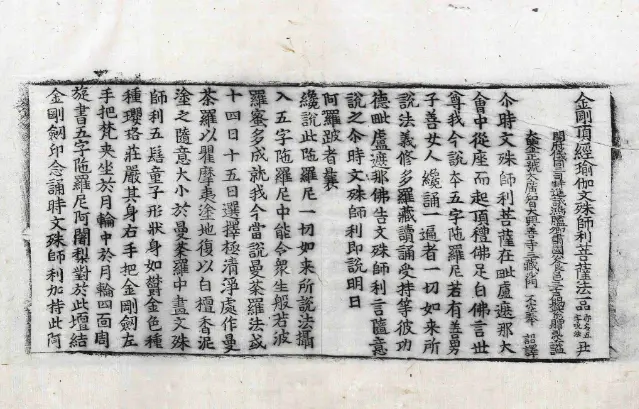 金剛頂經瑜伽文殊師利菩薩法品 亦名五字呪法 丑
開府儀同三司特進試鴻臚卿肅國公食邑三千戶賜紫贈司空謚
大鑒正號大廣智大興善寺三藏沙門 不空奉 詔譯
尒時文殊師利菩薩在毗盧遮那大
會中從座而起頂禮佛足白佛言世
尊我今說夲五字陁羅尼若有善男
子善女人纔誦一遍者一切如來所
說法義修多羅藏讀誦受持等彼功
德毗盧遮那佛告文殊師利言隨意
說之尒時文殊師利即說明曰
阿羅跛者曩
纔說此陁羅尼一切如來所說法攝
入五字陁羅尼中能令衆生般若波
羅蜜多成就我今當說曼荼羅法或
十四日十五日選擇極清淨處作曼
荼羅以瞿摩夷塗地復以白檀香泥
塗之隨意大小於曼荼羅中畫文殊
師利五髻童子形狀身如欝金色種
種瓔珞莊嚴其身右手把金剛劒左
手把梵夾坐於月輪中於月輪四面周
旋書五字陁羅尼阿闍梨對於此壇結
金剛劒印念誦時文殊師利加持此阿